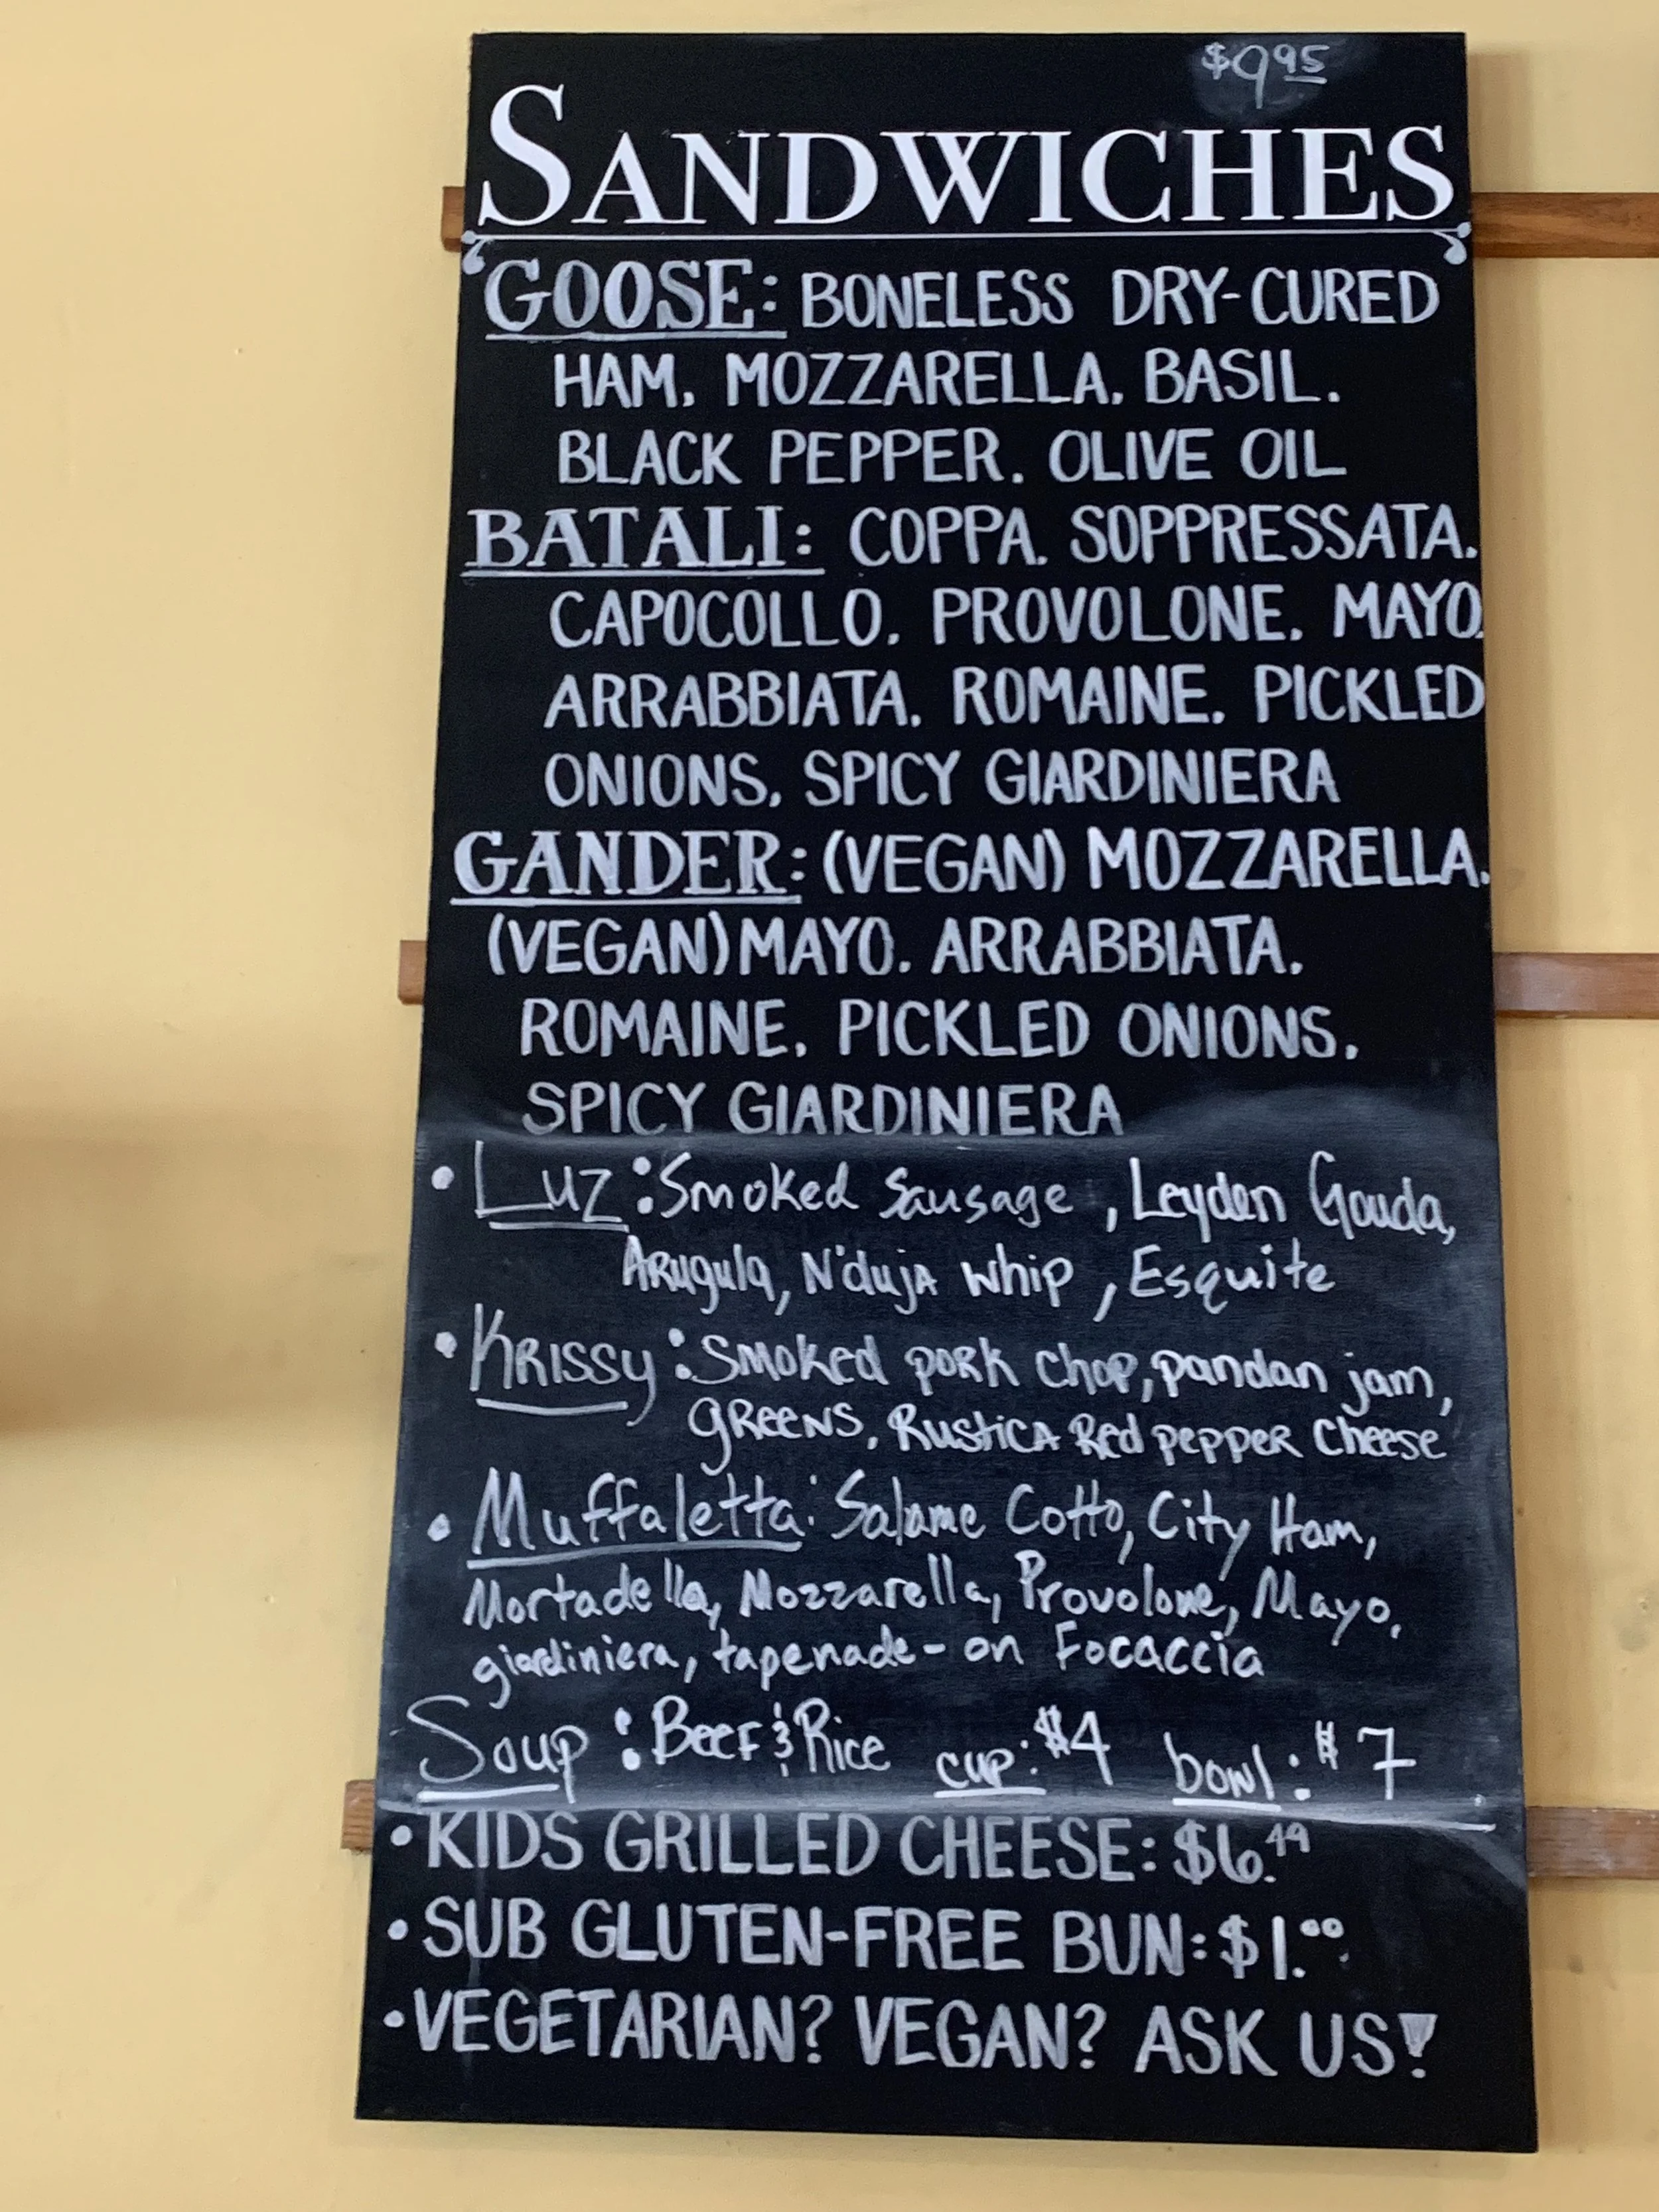 $9.95
SANDWICHES
GOOSE: BONELESS DRY-CURED
HAM, MOZZARELLA, BASIL,
BLACK PEPPER, OLIVE OIL
BATALI: COPPA, SOPPRESSATA,
CAPOCOLLO, PROVOLONE, MAYO,
ARRABBIATA, ROMAINE, PICKLED
ONIONS, SPICY GIARDINIERA
GANDER: (VEGAN) MOZZARELLA,
(VEGAN) MAYO, ARRABBIATA,
ROMAINE, PICKLED ONIONS,
SPICY GIARDINIERA
• Luz: Smoked Sausage, Leyden Gouda,
Arugula, N'duja whip, Esquite
• Krissy: Smoked pork chop, pandan jam,
greens, Rustica Red pepper cheese
• Muffaletta: Salame Cotto, City Ham,
Mortadella, Mozzarella, Provolone, Mayo,
giardiniera, tapenade - on Focaccia
Soup: Beef & Rice cup: $4 bowl: $7
• KIDS GRILLED CHEESE: $6.49
• SUB GLUTEN-FREE BUN: $1.00
• VEGETARIAN? VEGAN? ASK US!